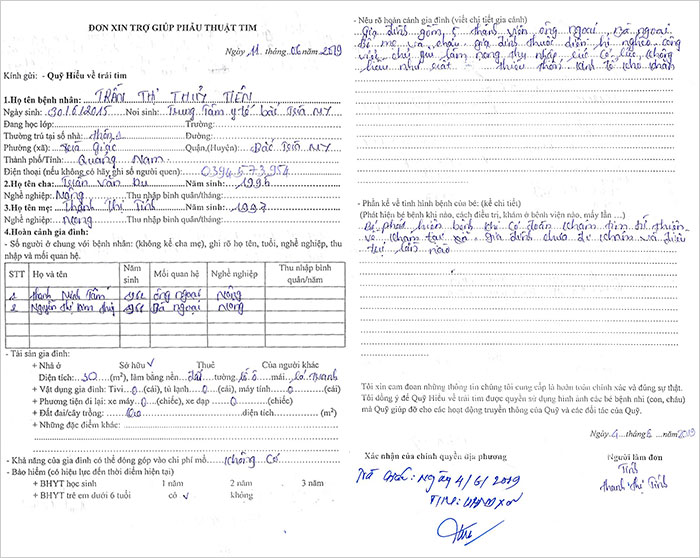 ĐƠN XIN TRỢ GIÚP PHẪU THUẬT TIM
Ngày 11 tháng 06 năm 2019
Kính gửi: - Quỹ Hiểu về trái tim
1.Họ tên bệnh nhân: TRẦN THỊ THUỶ TIÊN
Ngày sinh: 30/6/2015 Nơi sinh: Trung Tâm y tế bắc Trà My
Đang học lớp: Trường:
Thường trú tại số nhà: thôn 2 Đường:
Phường (xã): Trà Giác Quận,(Huyện): Bắc Trà My
Thành phố/Tỉnh: Quảng Nam
Điện thoại (nếu không có hãy ghi số người quen): 0394573954
2.Họ tên cha: Trần Văn Du Năm sinh: 1995
Nghề nghiệp: Nông Thu nhập bình quân/tháng:
3.Họ tên mẹ: Thanh Thị Tính Năm sinh: 1997
Nghề nghiệp: Nông Thu nhập bình quân/tháng:
4.Hoàn cảnh gia đình:
- Số người ở chung với bệnh nhân: (không kể cha mẹ), ghi rõ họ tên, tuổi, nghề nghiệp, thu
nhập và mối quan hệ.
STT Họ và tên Năm sinh Mối quan hệ Nghề nghiệp Thu nhập bình quân/năm
1 thanh Minh Tâm ông ngoại Nông
2 Nguyễn thị kim Bà ngoại Nông
- Tài sản gia đình:
+ Nhà ở Sở hữu ✓ Thuê Của người khác
Diện tích: 30 (m²), làm bằng nền đất tường mái
+ Vật dụng gia đình: Tivi 0 (cái), tủ lạnh 0 (cái), máy tính 0 (cái)
+ Phương tiện đi lại: xe máy 0 (chiếc), xe đạp 0 (chiếc)
+ Đất đai/cây trồng: diện tích (m²)
+ Những đặc điểm khác:
- Khả năng của gia đình có thể đóng góp vào chi phí mổ không có
- Bảo hiểm (có hiệu lực đến thời điểm hiện tại)
+ BHYT học sinh 1 năm 2 năm 3 năm
+ BHYT trẻ em dưới 6 tuổi có ✓ không
- Nêu rõ hoàn cảnh gia đình (viết chi tiết gia cảnh)
Gia đình gồm 5 thành viên ông ngoại, Bà ngoại
Bố mẹ và cháu gia đình thuộc diện hộ nghèo công
việc chủ yếu làm nông thu nhập
thiếu thốn kinh tế khó khăn
- Phần kể về tình hình bệnh của bé: (kể chi tiết)
(Phát hiện bé bệnh khi nào, cách điều trị, khám ở bệnh viện nào, mấy lần …)
Bé phát hiện bệnh khi có đoàn khám tim từ thiện
về khám tại xã gia đình chưa đi khám và điều
trị lần nào
Tôi xin cam đoan những thông tin chúng tôi cung cấp là hoàn toàn chính xác và đúng sự thật.
Tôi đồng ý để Quỹ Hiểu về trái tim được quyền sử dụng hình ảnh các bé bệnh nhi (con, cháu)
mà Quỹ giúp đỡ cho các hoạt động truyền thông của Quỹ và các đối tác của Quỹ.
Ngày 4 tháng 6 năm 2019
Xác nhận của chính quyền địa phương Người làm đơn
Trà Giác, Ngày 4/6/2019 Tính
thanh thị Tính